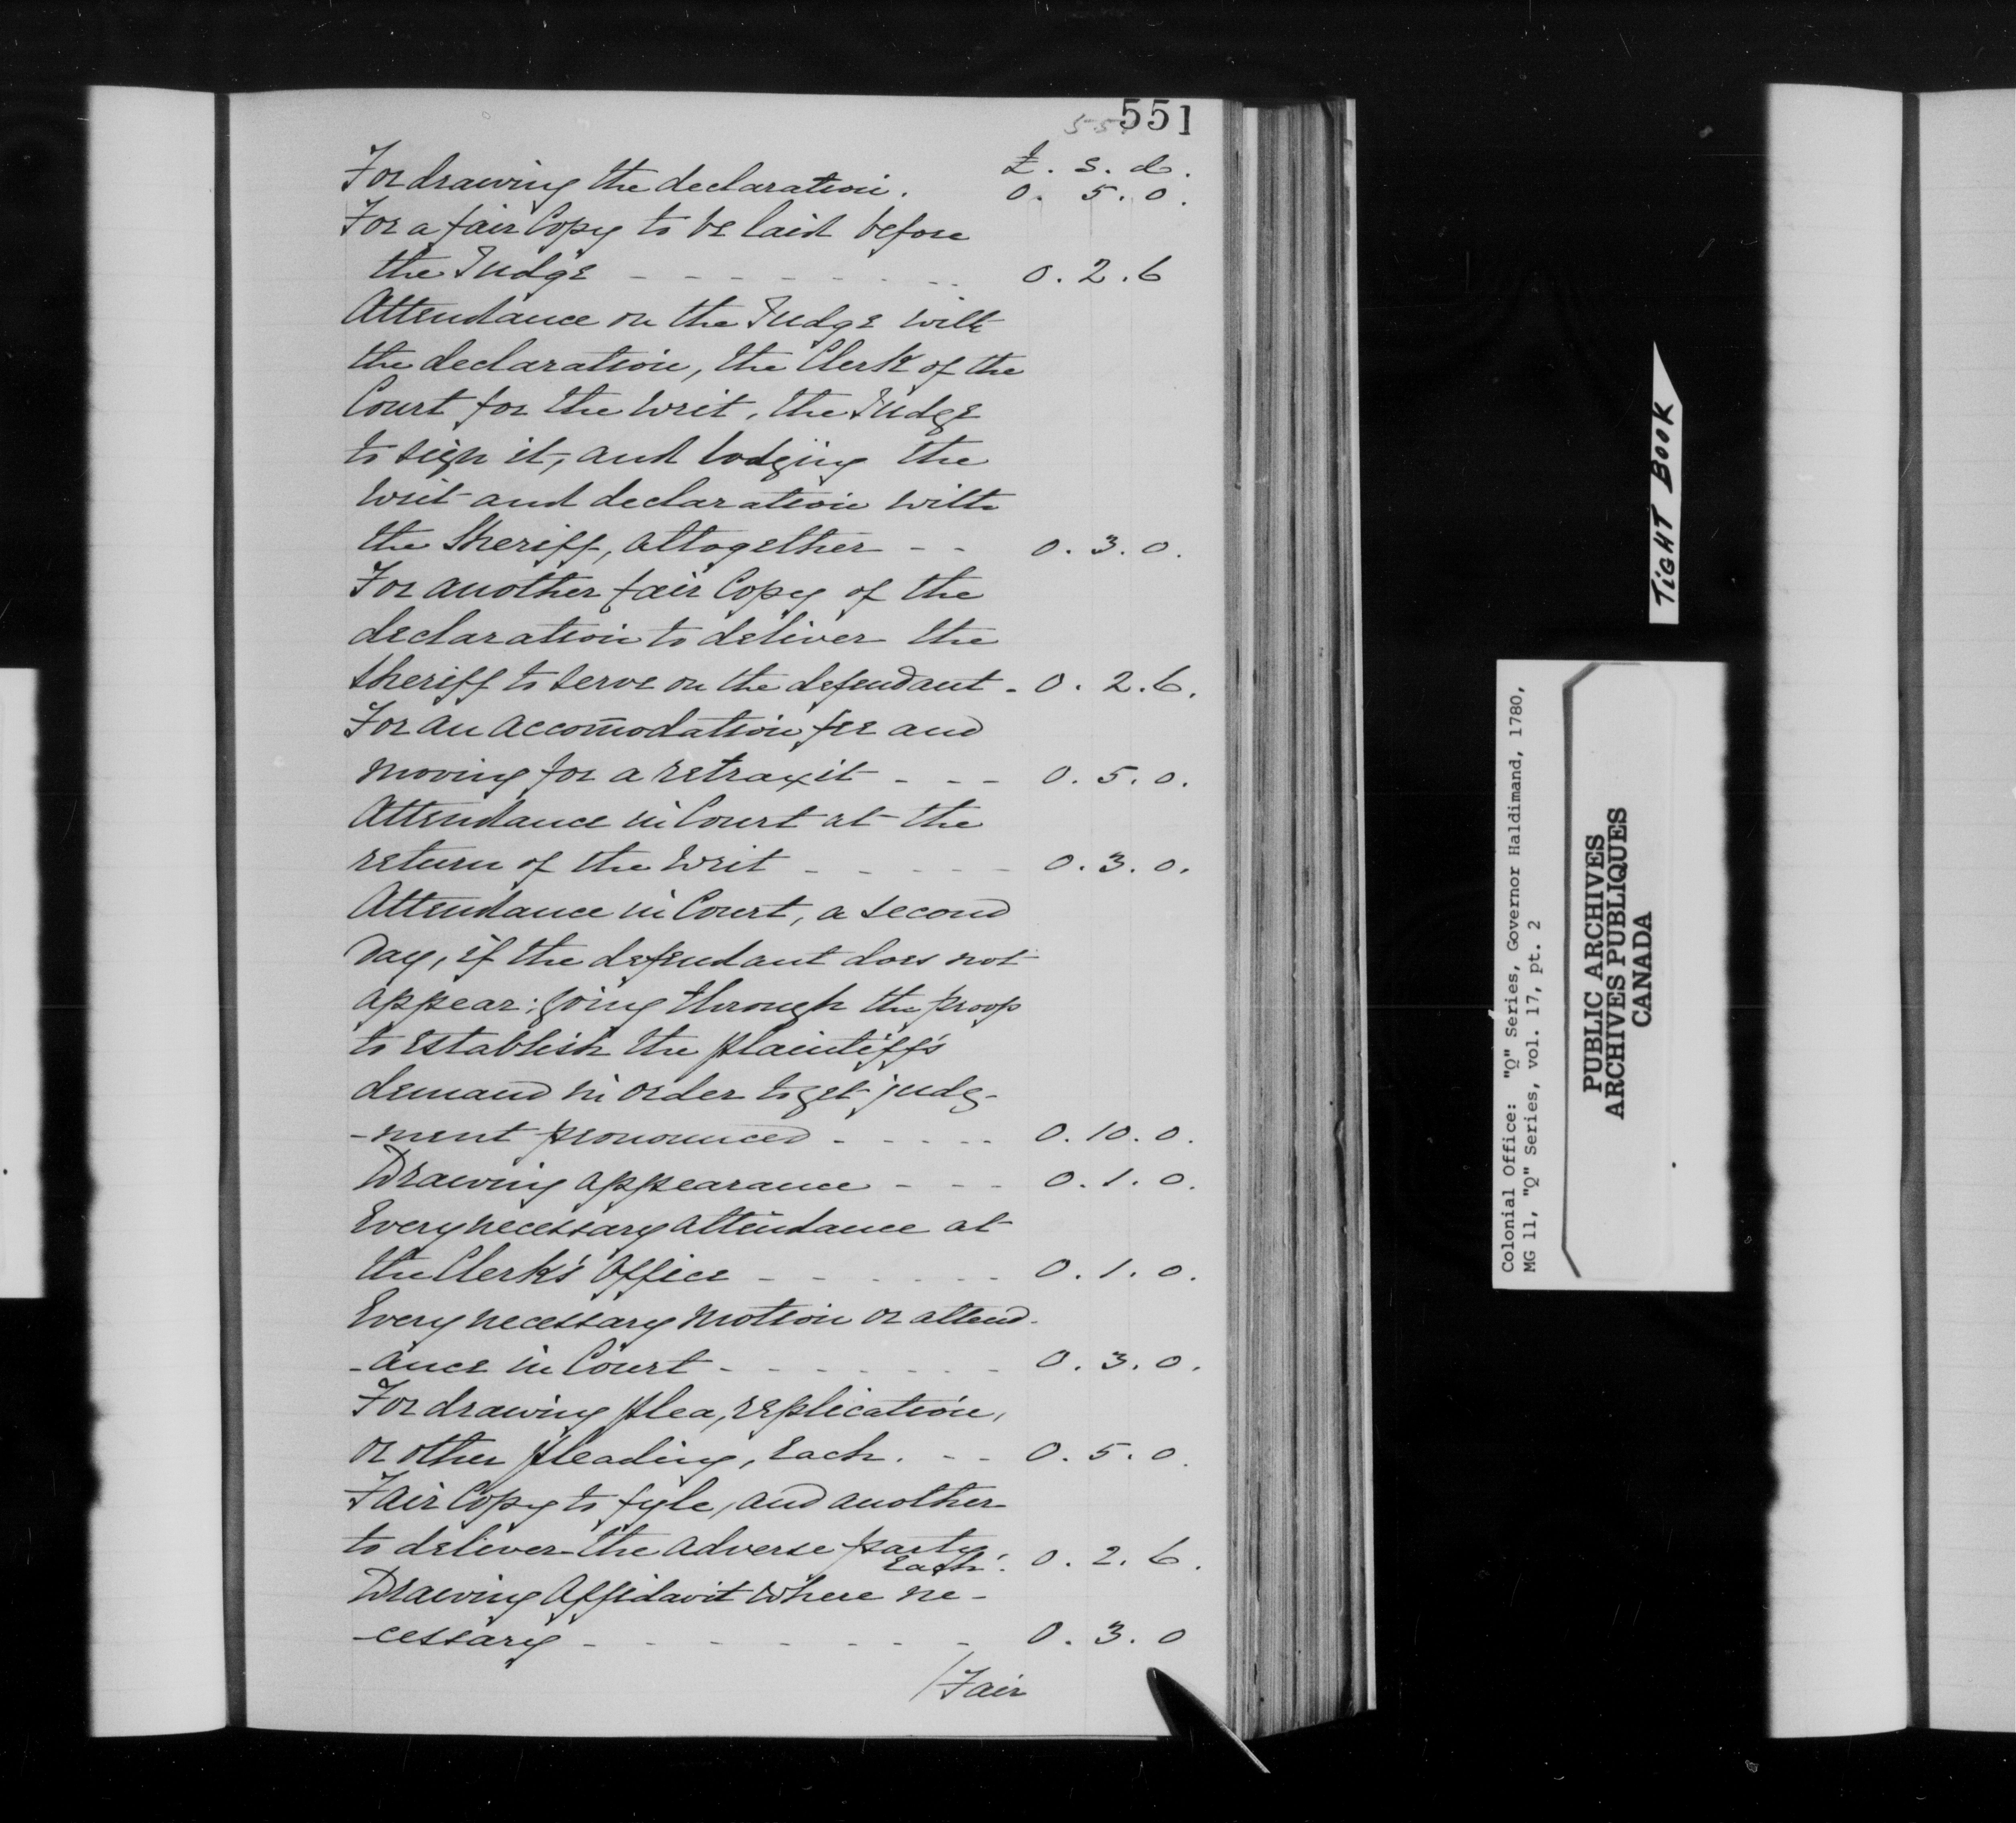 551
£. s. d.
For drawing the declaration. 0. 5. 0.
For a fair Copy to be laid before
the Judge - - - - - - - 0. 2. 6
Attendance on the Judge with
the declaration, the Clerk of the
Court for the Writ, the Judge
to sign it, and lodging the
Writ and declaration with
the Sheriff, altogether - - 0. 3. 0.
For another fair Copy of the
declaration to deliver the
Sheriff to serve on the defendant - 0. 2. 6.
For an accom̄odation fee and
moving for a retraxit - - - 0. 5. 0.
Attendance in Court at the
return of the Writ - - - - - 0. 3. 0.
Attendance in Court, a second
Day, if the defendant does not
appear: going through the proof
to establish the plaintiff's
demand in order to get judg-
-ment pronounced - - - - - 0. 10. 0.
Drawing appearance - - - 0. 1. 0.
Every necessary attendance at
the Clerk's Office - - - - - - 0. 1. 0.
Every necessary Motion or attend-
-ance in Court - - - - - - - 0. 3. 0.
For drawing plea, replication,
or other pleading, each. - - 0. 5. 0.
Fair Copy to fyle, and another
to deliver the adverse party
Each. 0. 2. 6.
Drawing Affidavit where ne-
-cessary - - - - - - - 0. 3. 0
/Fair
TIGHT BOOK
Colonial Office: "Q" Series, Governor Haldimand, 1780,
MG 11, "Q" Series, vol. 17, pt. 2
PUBLIC ARCHIVES
ARCHIVES PUBLIQUES
CANADA